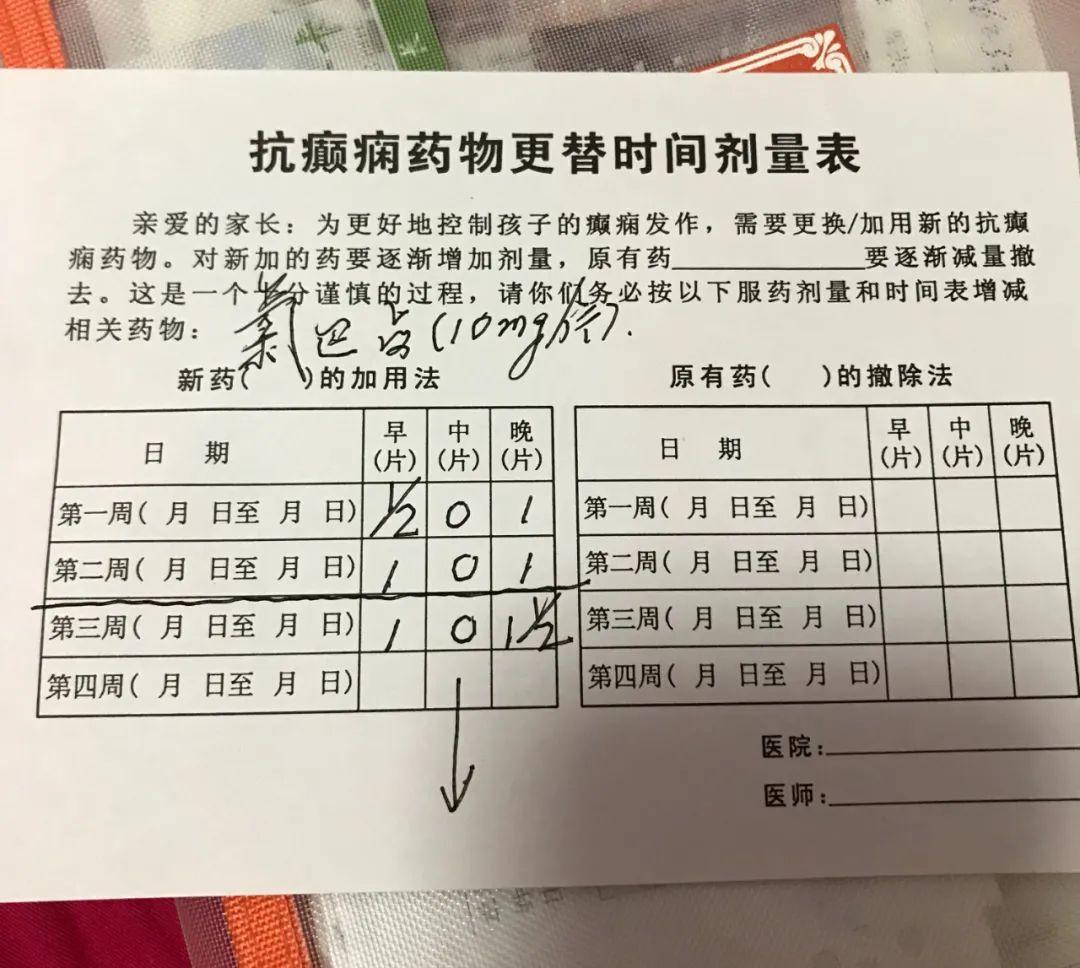 抗癫痫药物更替时间剂量表
亲爱的家长：为更好地控制孩子的癫痫发作，需要更换/加用新的抗癫
痫药物。对新加的药要逐渐增加剂量，原有药____________要逐渐减量撤
去。这是一个十分谨慎的过程，请你们务必按以下服药剂量和时间表增减
相关药物：
氯巴占(10mg/片).
新药(  )的加用法
日 期 早(片) 中(片) 晚(片)
第一周( 月 日至 月 日) 1/2 0 1
第二周( 月 日至 月 日) 1 0 1
第三周( 月 日至 月 日) 1 0 1 1/2
第四周( 月 日至 月 日) ↓
原有药(  )的撤除法
日 期 早(片) 中(片) 晚(片)
第一周( 月 日至 月 日)
第二周( 月 日至 月 日)
第三周( 月 日至 月 日)
第四周( 月 日至 月 日)
医院：
医师：